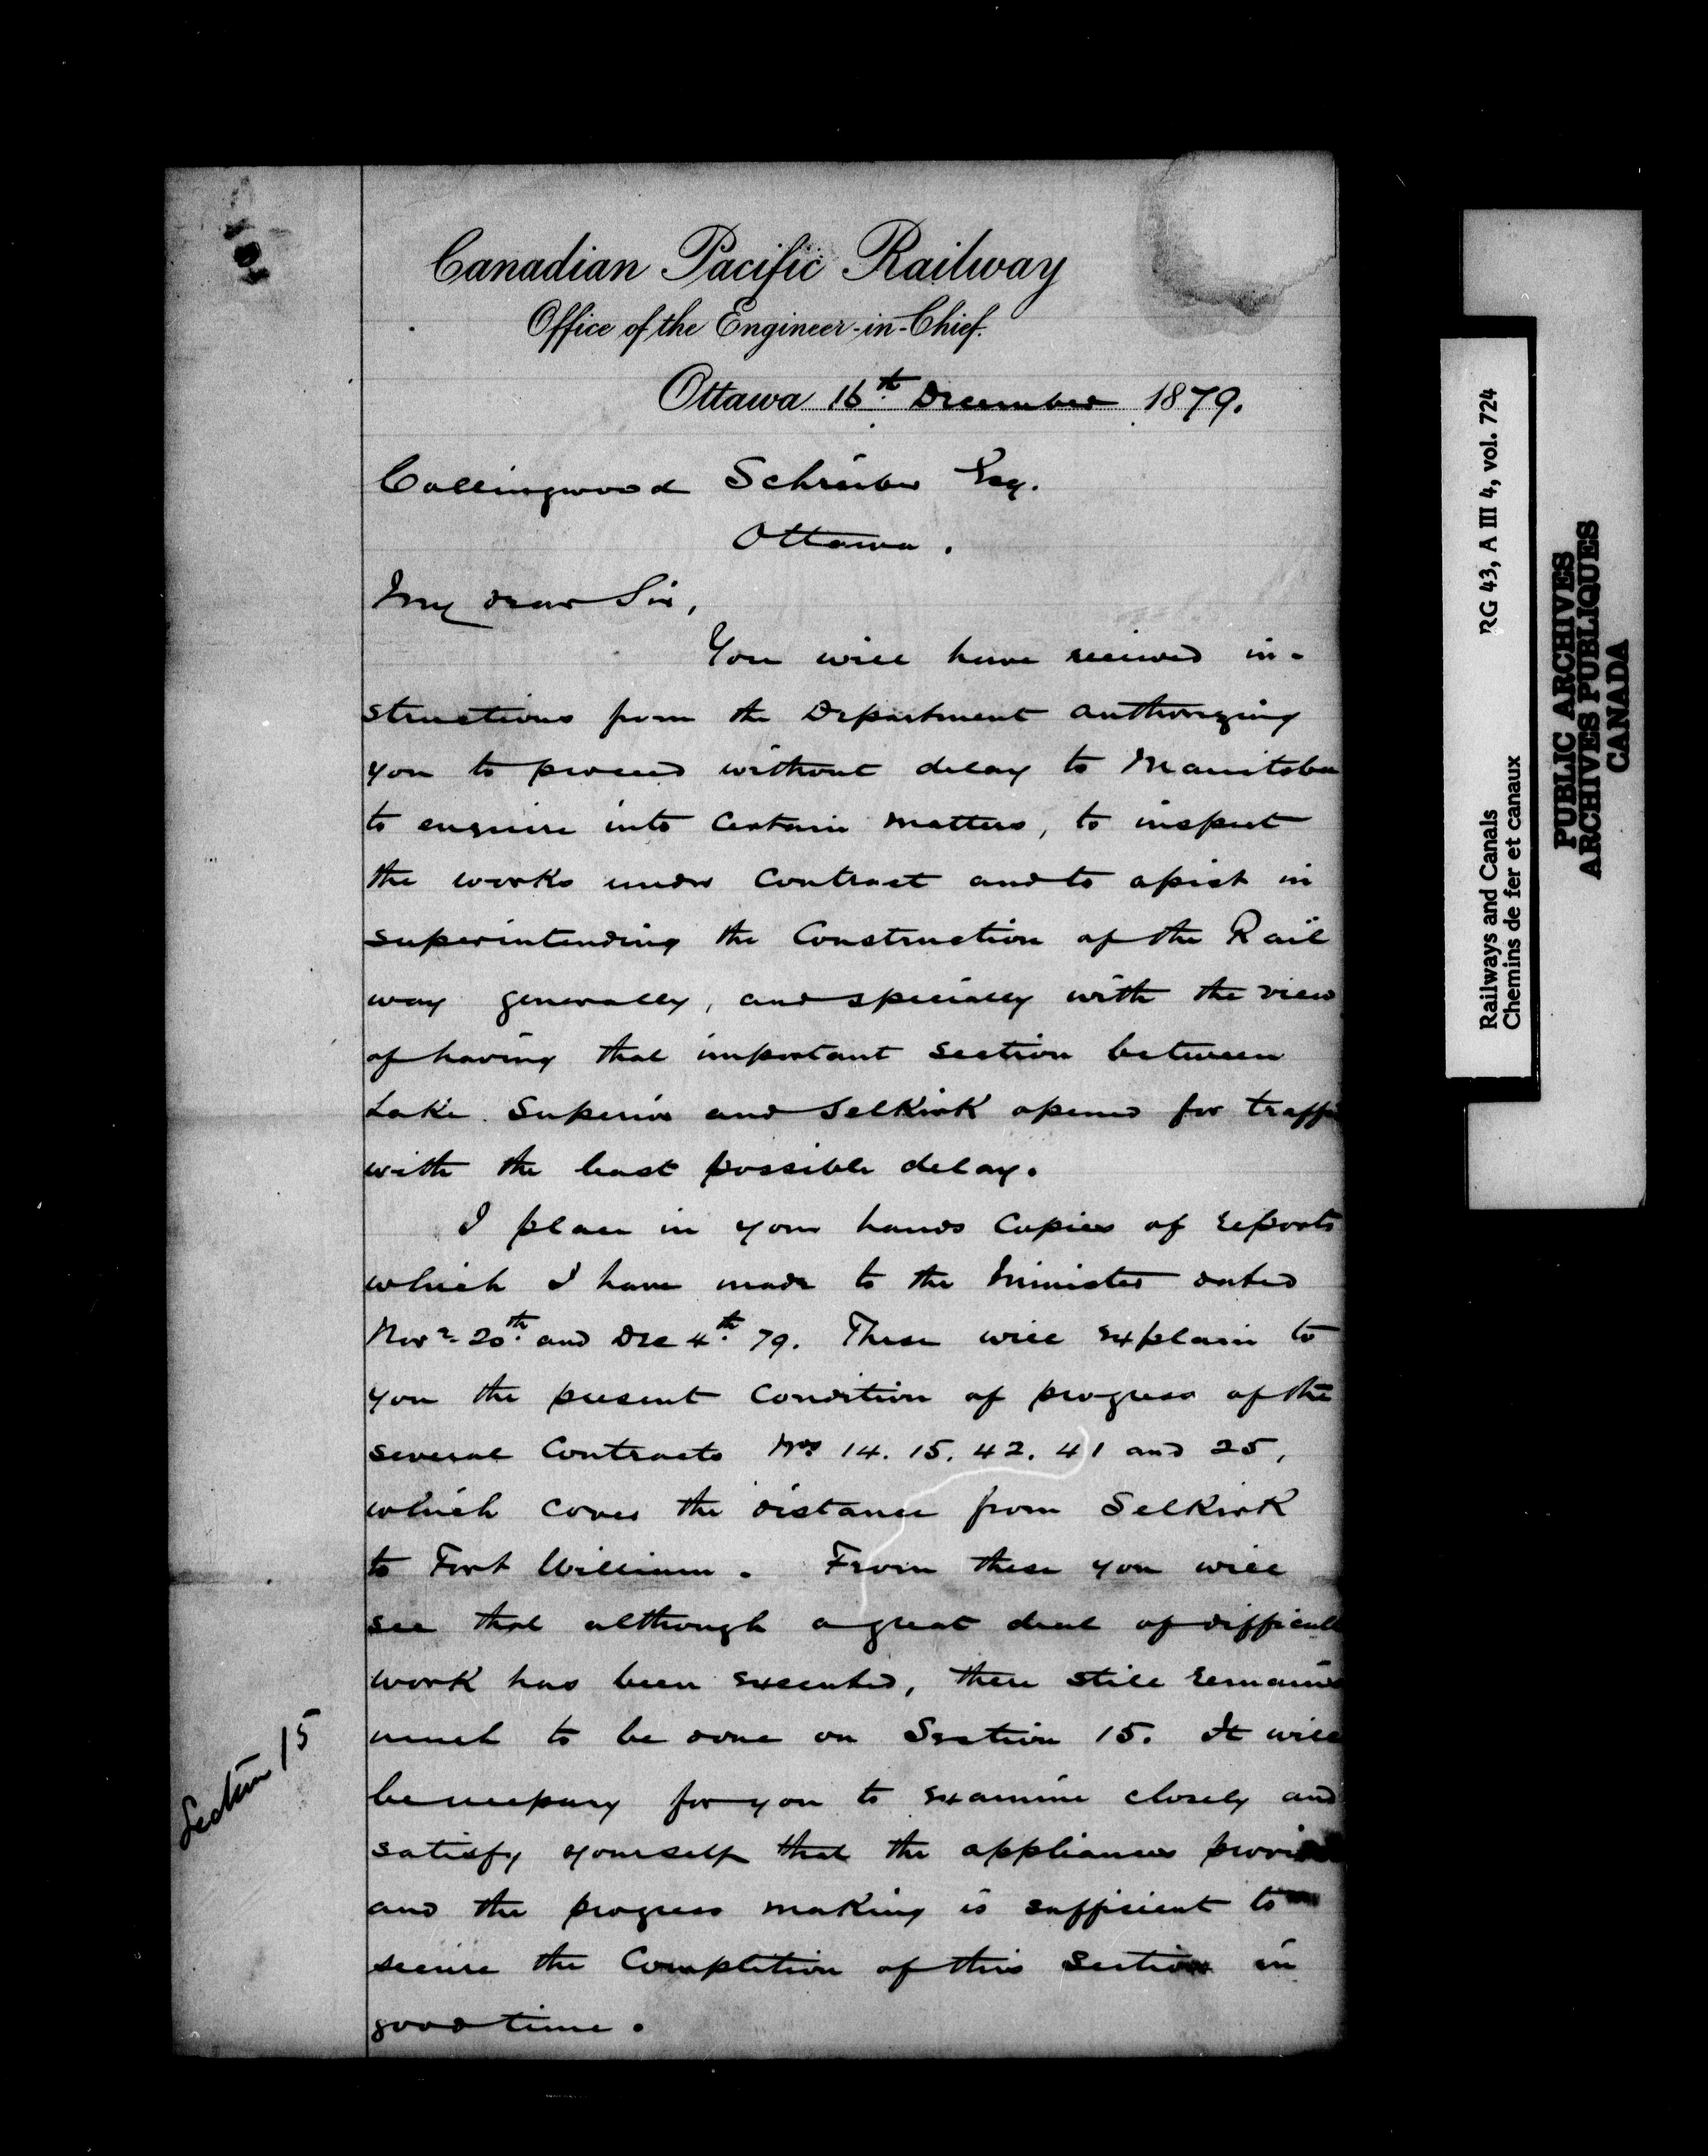 Canadian Pacific Railway
Office of the Engineer-in-Chief.
Ottawa 16th December 1879.
Collingwood Schreiber Esq.
Ottawa.
My dear Sir,
You will have received in-
structions from the Department authorizing
you to proceed without delay to Manitoba
to enquire into certain matters, to inspect
the works under Contract and to assist in
superintending the Construction of the Rail
way generally, and specially with the view
of having that important section between
Lake Superior and Selkirk opened for traffic
with the least possible delay.
I place in your hands Copies of reports
which I have made to the Minister dated
Novr 20th and Dec 4th 79. These will explain to
you the present Condition of progress of the
several Contracts Nos 14. 15. 42. 41 and 25,
which cover the distance from Selkirk
to Fort William. From these you will
see that although a great deal of difficult
work has been executed, there still remains
much to be done on Section 15. It will
be necessary for you to examine closely and
satisfy yourself that the appliances provided
and the progress making is sufficient to
secure the Completion of this Section in
good time.
Section 15
RG 43, A III 4, vol. 724
Railways and Canals
Chemins de fer et canaux
PUBLIC ARCHIVES
ARCHIVES PUBLIQUES
CANADA